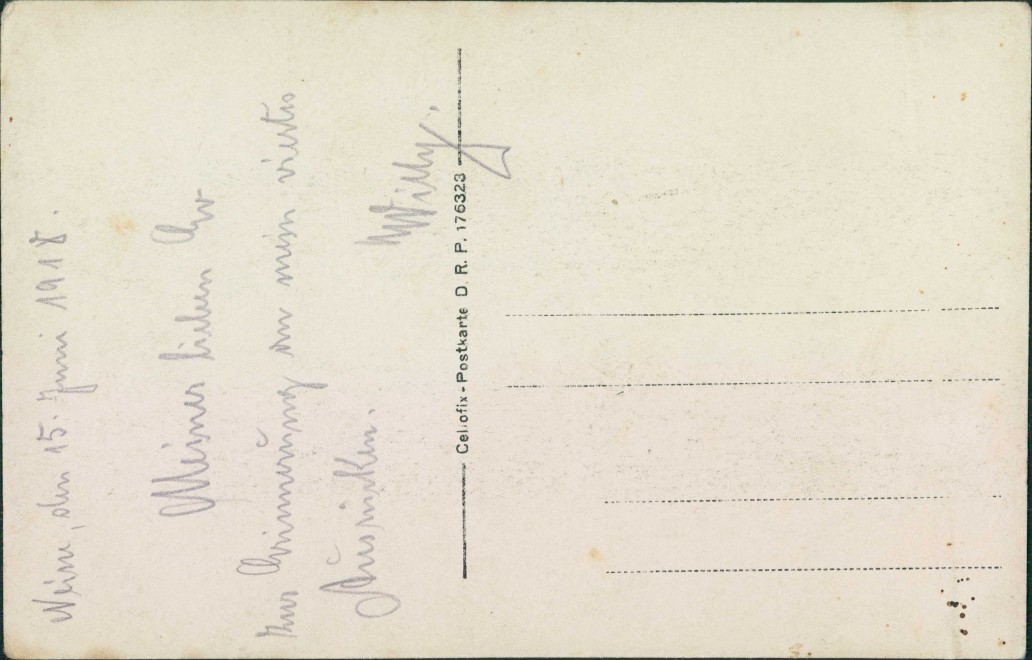 den 15. Juni 1918.
Meiner lieben
Zur Erinnerung an mein viertes
Ausrücken.
Willy.
Cellofix-Postkarte D. R. P. 176323